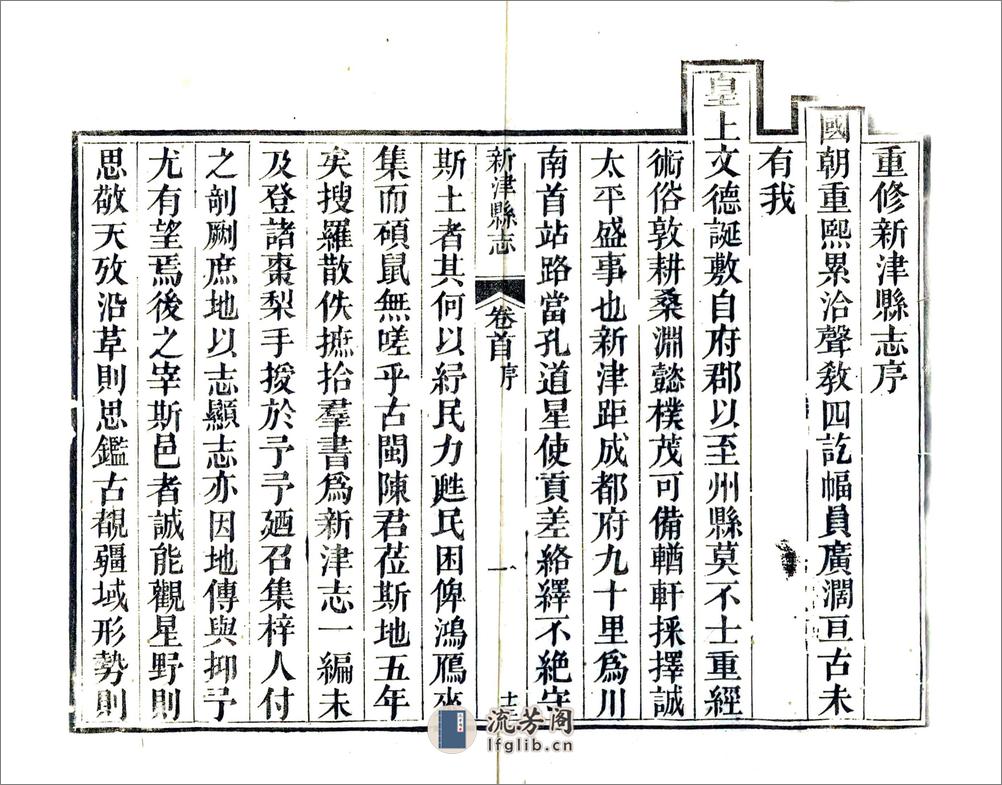 重修新津縣志序
國朝重熙累洽聲敎四訖幅員廣濶亘古未
有我
皇上文德誕敷自府郡以至州縣莫不士重經
術俗敦耕桑淵懿樸茂可備輶軒採擇誠
太平盛事也新津距成都府九十里爲川
南首站路當孔道星使貢差絡繹不絶守
新津縣志
卷首
序
一
斯土者其何以紓民力甦民困俾鴻鴈來
集而碩鼠無嗟乎古閩陳君莅斯地五年
矣搜羅散佚摭拾羣書爲新津志一編未
及登諸棗梨手授於予予廼召集梓人付
之剞劂庶地以志顯志亦因地傳與抑予
尤有望焉後之宰斯邑者誠能觀星野則
思敬天攷沿革則思鑑古覩疆域形勢則
流芳阁
lfglib.cn